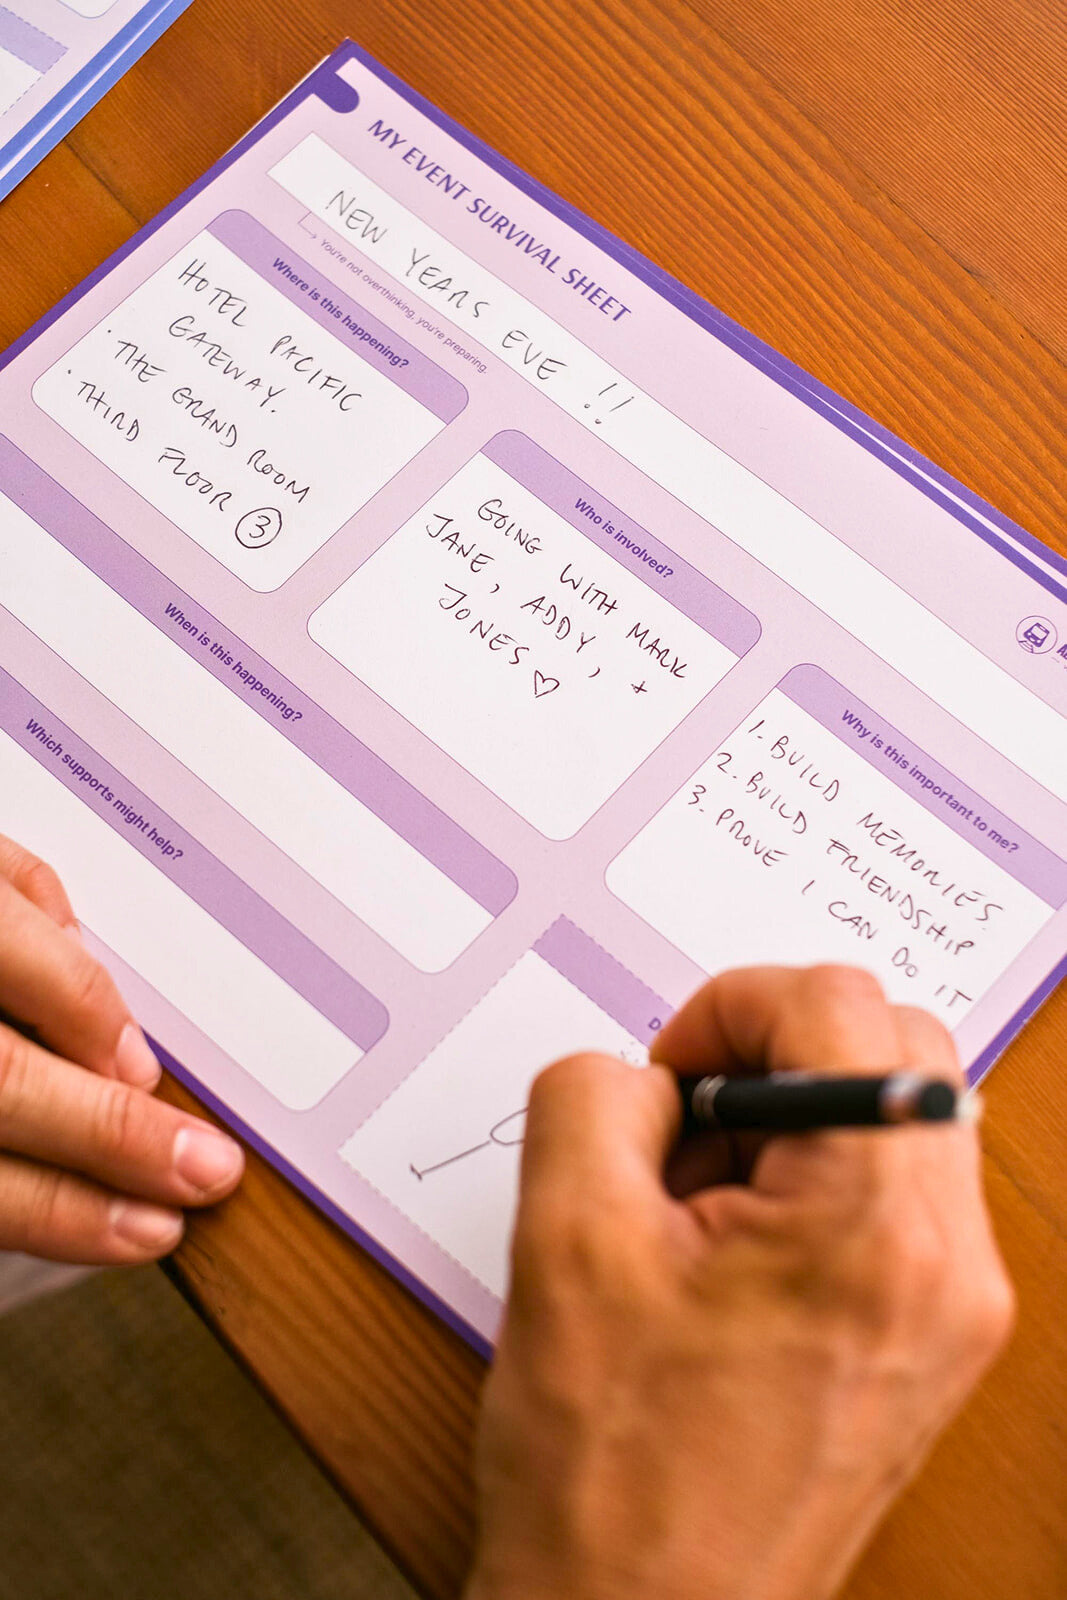 MY EVENT SURVIVAL SHEET
NEW YEARS EVE !!
You're not overthinking, you're preparing.
Where is this happening?
HOTEL PACIFIC
GATEWAY.
· THE GRAND ROOM
· THIRD FLOOR 3
Who is involved?
GOING WITH MARK
JANE, ADDY, +
JONES ♡
Why is this important to me?
1. BUILD MEMORIES.
2. BUILD FRIENDSHIP
3. PROVE I CAN DO IT
When is this happening?
Which supports might help?